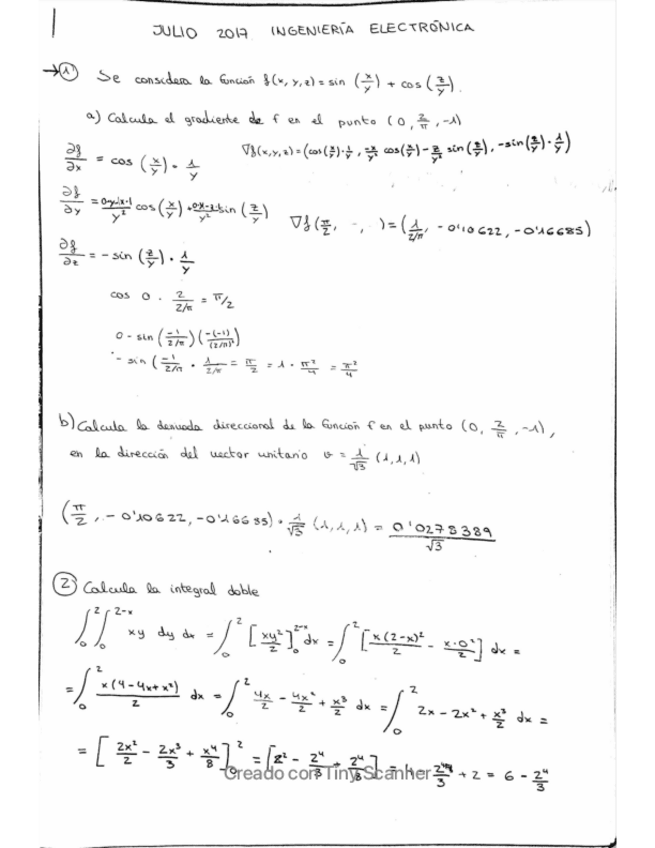 JULIO 2017 INGENIERÍA ELECTRÓNICA
→ 1 Se considera la función f(x, y, z) = sin (x/y) + cos (z/y).
a) Calcula el gradiente de f en el punto (0, 2/π, -1)
∂f/∂x = cos (x/y) · 1/y
∇f(x,y,z) = (cos(x/y)·1/y, -x/y² cos(x/y) - z/y² sin(z/y), -sin(z/y)·1/y)
∂f/∂y = cos (x/y) sin (z/y)
∇f(π/2, -, ) = (1/2/π, -0'10622, -0'16685)
∂f/∂z = - sin (z/y) · 1/y
cos 0 · 2/2/π = π/2
0 - sin (-1/2/π) (-(-1)/(2/π)²)
- sin (-1/2/π · 1/2/π = π/2 = 1 · π²/4 = π²/4
b) Calcula la derivada direccional de la función f en el punto (0, 2/π, -1),
en la dirección del vector unitario v = 1/√3 (1,1,1)
(π/2, -0'10622, -0'16685) · 1/√3 (1,1,1) = 0'0278389/√3
2 Calcula la integral doble
∫₀² ∫₀²⁻ˣ xy dy dx = ∫₀² [xy²/2]₀²⁻ˣ dx = ∫₀² [x(2-x)²/2 - x·0²/2] dx =
= ∫₀² x(4-4x+x²)/2 dx = ∫₀² 4x/2 - 4x²/2 + x³/2 dx = ∫₀² 2x - 2x² + x³/2 dx =
= [2x²/2 - 2x³/3 + x⁴/8]₀² = [2² - 2⁴/3 + 2⁴/8] = 4 - 2⁴/3 + 2 = 6 - 2⁴/3
Creado con TinyScanner